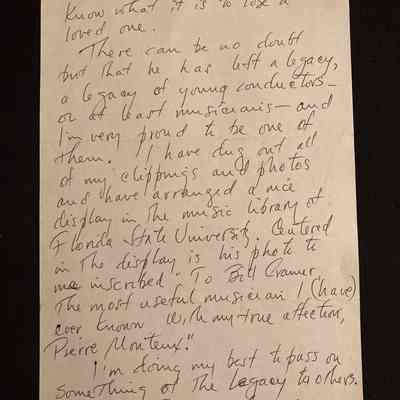 Know what it is to lose a
loved one.
There can be no doubt
but that he has left a legacy,
a legacy of young conductors –
or at least musicians – and
I'm very proud to be one of
them. I have dug out all
of my clippings and photos
and have arranged a nice
display in the music library of
Florida State University. Centered
in the display is his photo to
me inscribed "To Bill Cramer
The most useful musician I (have)
ever known with my true affection,
Pierre Monteux."
I'm doing my best to pass on
something of the legacy to others.